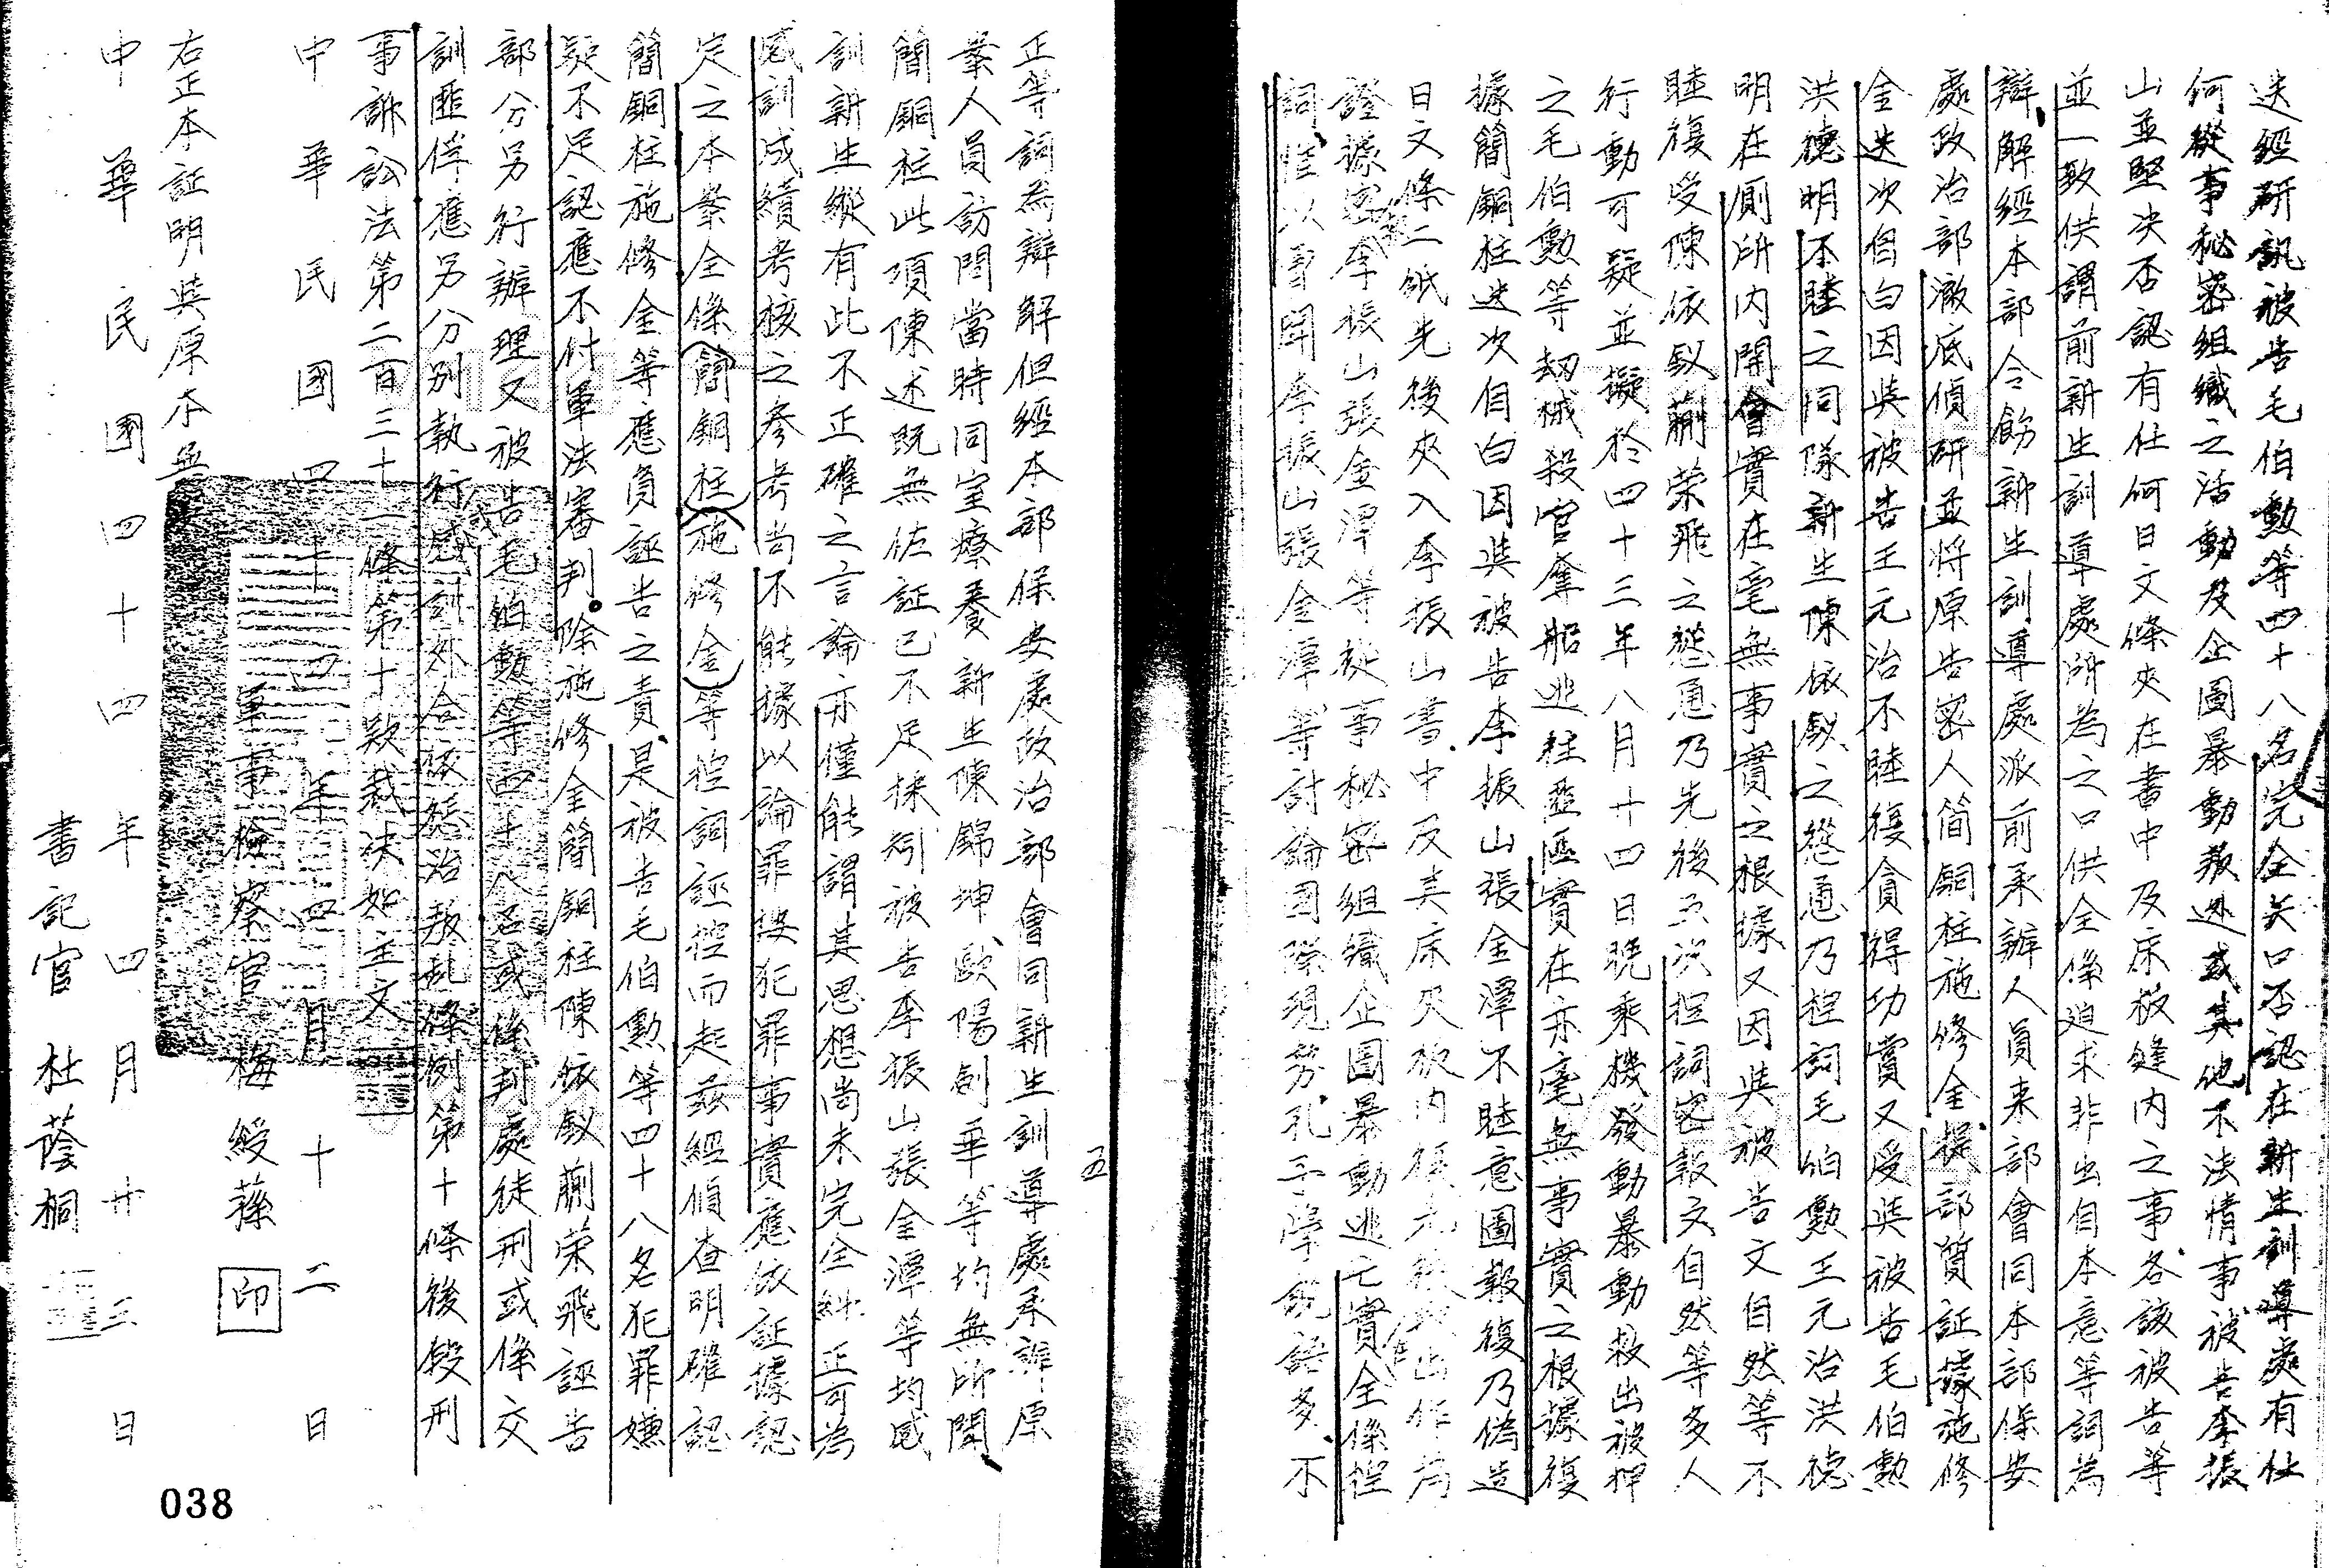 迭經研訊被告毛伯勳等四十八名完全矢口否認在新生訓導處有任
何從事秘密組織之活動及企圖暴動叛逃或其他不法情事被告李振
山並堅决否認有任何日文條夾在書中及床板縫內之事各該被告等
並一致供謂前新生訓導處所為之口供全係迫求非出自本意等詞為
辯解經本部令飭新生訓導處派前承辦人員來部會同本部保安
處政治部澈底偵研並將原告密人簡銅柱施修金提部質証據施修
金迭次自白因與被告王元治不睦復貪得功賞又受與被告毛伯勳
洪德明不睦之同隊新生陳依釵之慫恿乃捏詞毛伯勳王元治洪德
明在厠所內開會實在毫無事實之根據又因與被告文自然等不
睦複受陳依釵蒯荣飛之慫恿乃先後五次捏詞密報文自然等多人
行動可疑並擬於四十三年八月廿四日晚乘機發動暴動救出被押
之毛伯勳等刼械殺官奪船逃往匪區實在亦毫無事實之根據復
據簡銅柱迭次自白因與被告李振山張金潭不睦意圖報復乃偽造
日文條二紙先後夾入李振山書中及其床夾板內後作為
證據密李振山張金潭等從事秘密組織企圖暴動逃亡實全係捏
詞惟以曾聞李振山張金潭等討論國際現勢孔子學說語多不
五
正等詞為辯解但經本部保安處政治部會同新生訓導處承辦原
案人員訪問當時同室療養新生陳錦坤歐陽劍華等均無所聞
簡銅柱此項陳述既無佐証已不足採列被告李振山張金潭等均感
訓新生縱有此不正確之言論亦僅能謂其思想尚未完全糾正可為
感訓成績考核之參考尚不能據以論罪按犯罪事實應依証據認
定之本案全係簡銅柱施修金等捏詞誣控而起茲經偵查明確認
簡銅柱施修金等應負誣告之責是被告毛伯勳等四十八名犯罪嫌
疑不足認應不付軍法審判。除施修金簡銅柱陳依釵蒯荣飛誣告
部分另行辦理又被告毛伯勳等四十八名或係判處徒刑或係交
訓匪俘應另分別執行感訓外合依惩治叛乱條例第十條後段刑
事訴訟法第二百三十一條第十款裁决如主文
中華民國四十四年四月十二日
軍事檢察官梅綬蓀 印
右正本証明與原本無
中華民國四十四年四月廿三日
書記官 杜蔭桐
038